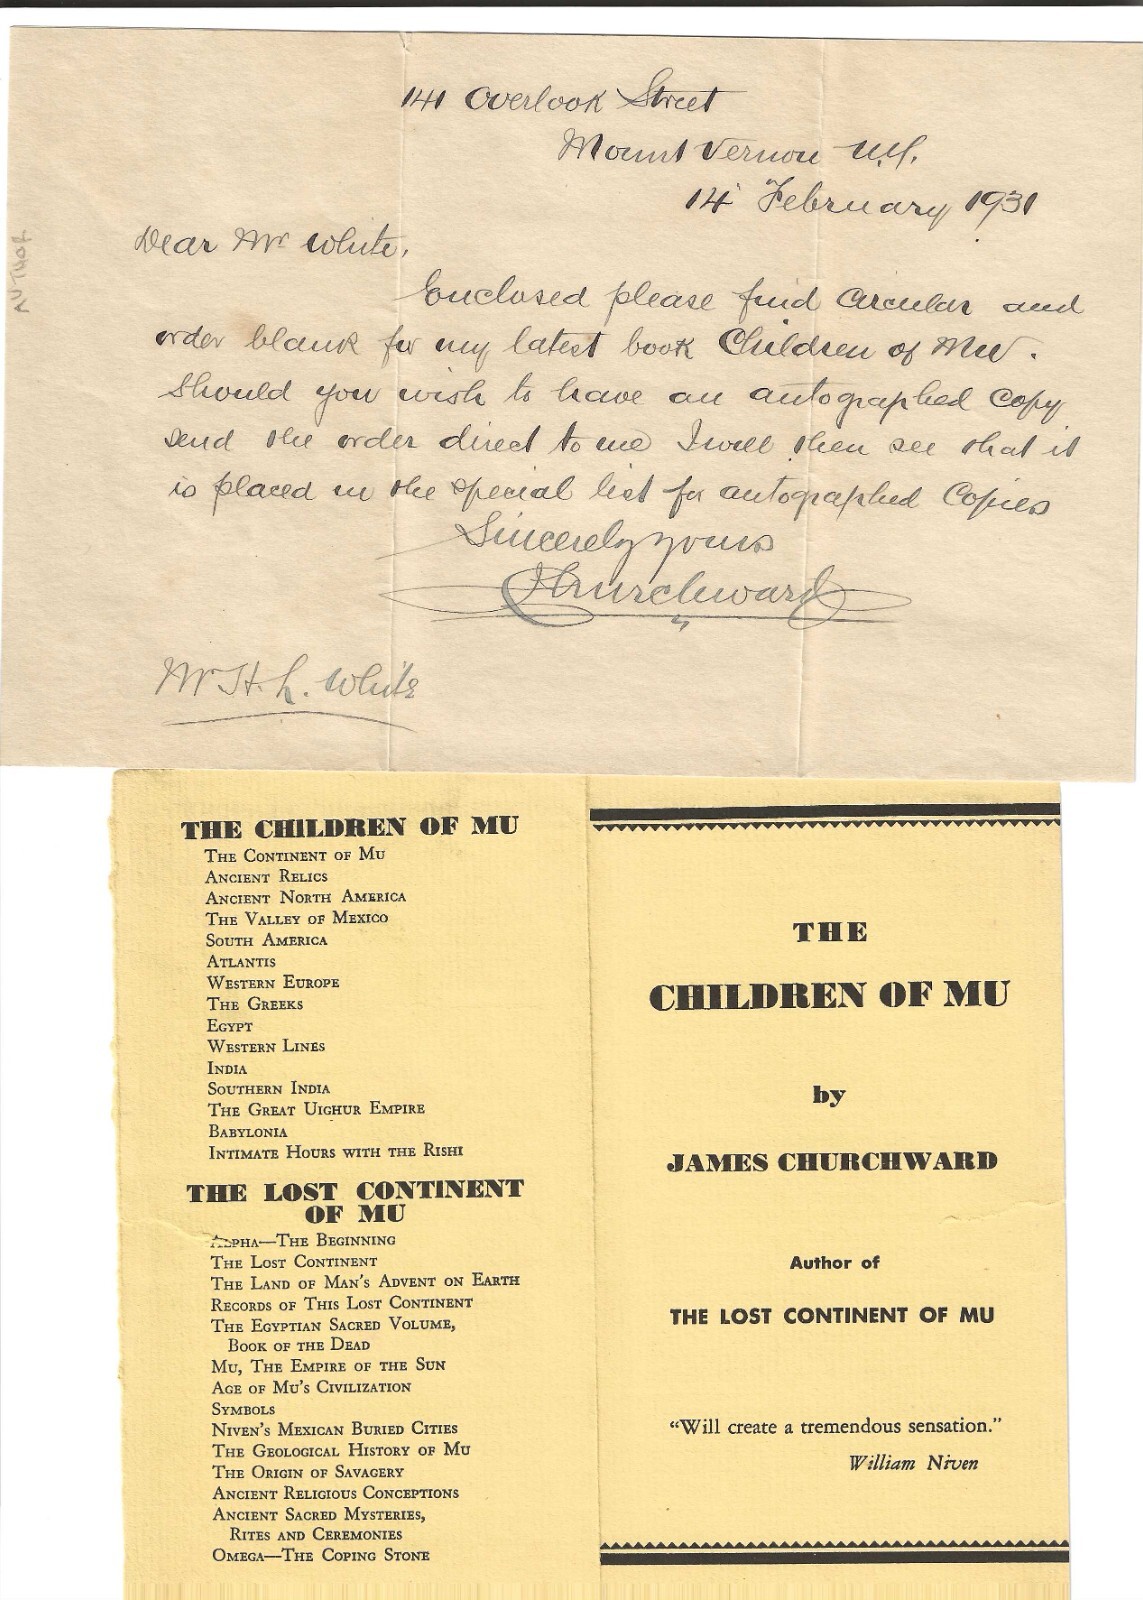 141 Overlook Street
Mount Vernon N.Y.
14 February 1931
Dear Mr White,
Enclosed please find circular and
order blank for my latest book Children of Mu.
Should you wish to have an autographed copy
send the order direct to me I will then see that it
is placed in the special list for autographed Copies
Sincerely yours
JChurchward
Mr H. L. White
AUTHOR
THE CHILDREN OF MU
THE CONTINENT OF MU
ANCIENT RELICS
ANCIENT NORTH AMERICA
THE VALLEY OF MEXICO
SOUTH AMERICA
ATLANTIS
WESTERN EUROPE
THE GREEKS
EGYPT
WESTERN LINES
INDIA
SOUTHERN INDIA
THE GREAT UIGHUR EMPIRE
BABYLONIA
INTIMATE HOURS WITH THE RISHI
THE LOST CONTINENT
OF MU
ALPHA—THE BEGINNING
THE LOST CONTINENT
THE LAND OF MAN'S ADVENT ON EARTH
RECORDS OF THIS LOST CONTINENT
THE EGYPTIAN SACRED VOLUME,
BOOK OF THE DEAD
MU, THE EMPIRE OF THE SUN
AGE OF MU'S CIVILIZATION
SYMBOLS
NIVEN'S MEXICAN BURIED CITIES
THE GEOLOGICAL HISTORY OF MU
THE ORIGIN OF SAVAGERY
ANCIENT RELIGIOUS CONCEPTIONS
ANCIENT SACRED MYSTERIES,
RITES AND CEREMONIES
OMEGA—THE COPING STONE
THE
CHILDREN OF MU
by
JAMES CHURCHWARD
Author of
THE LOST CONTINENT OF MU
"Will create a tremendous sensation."
William Niven